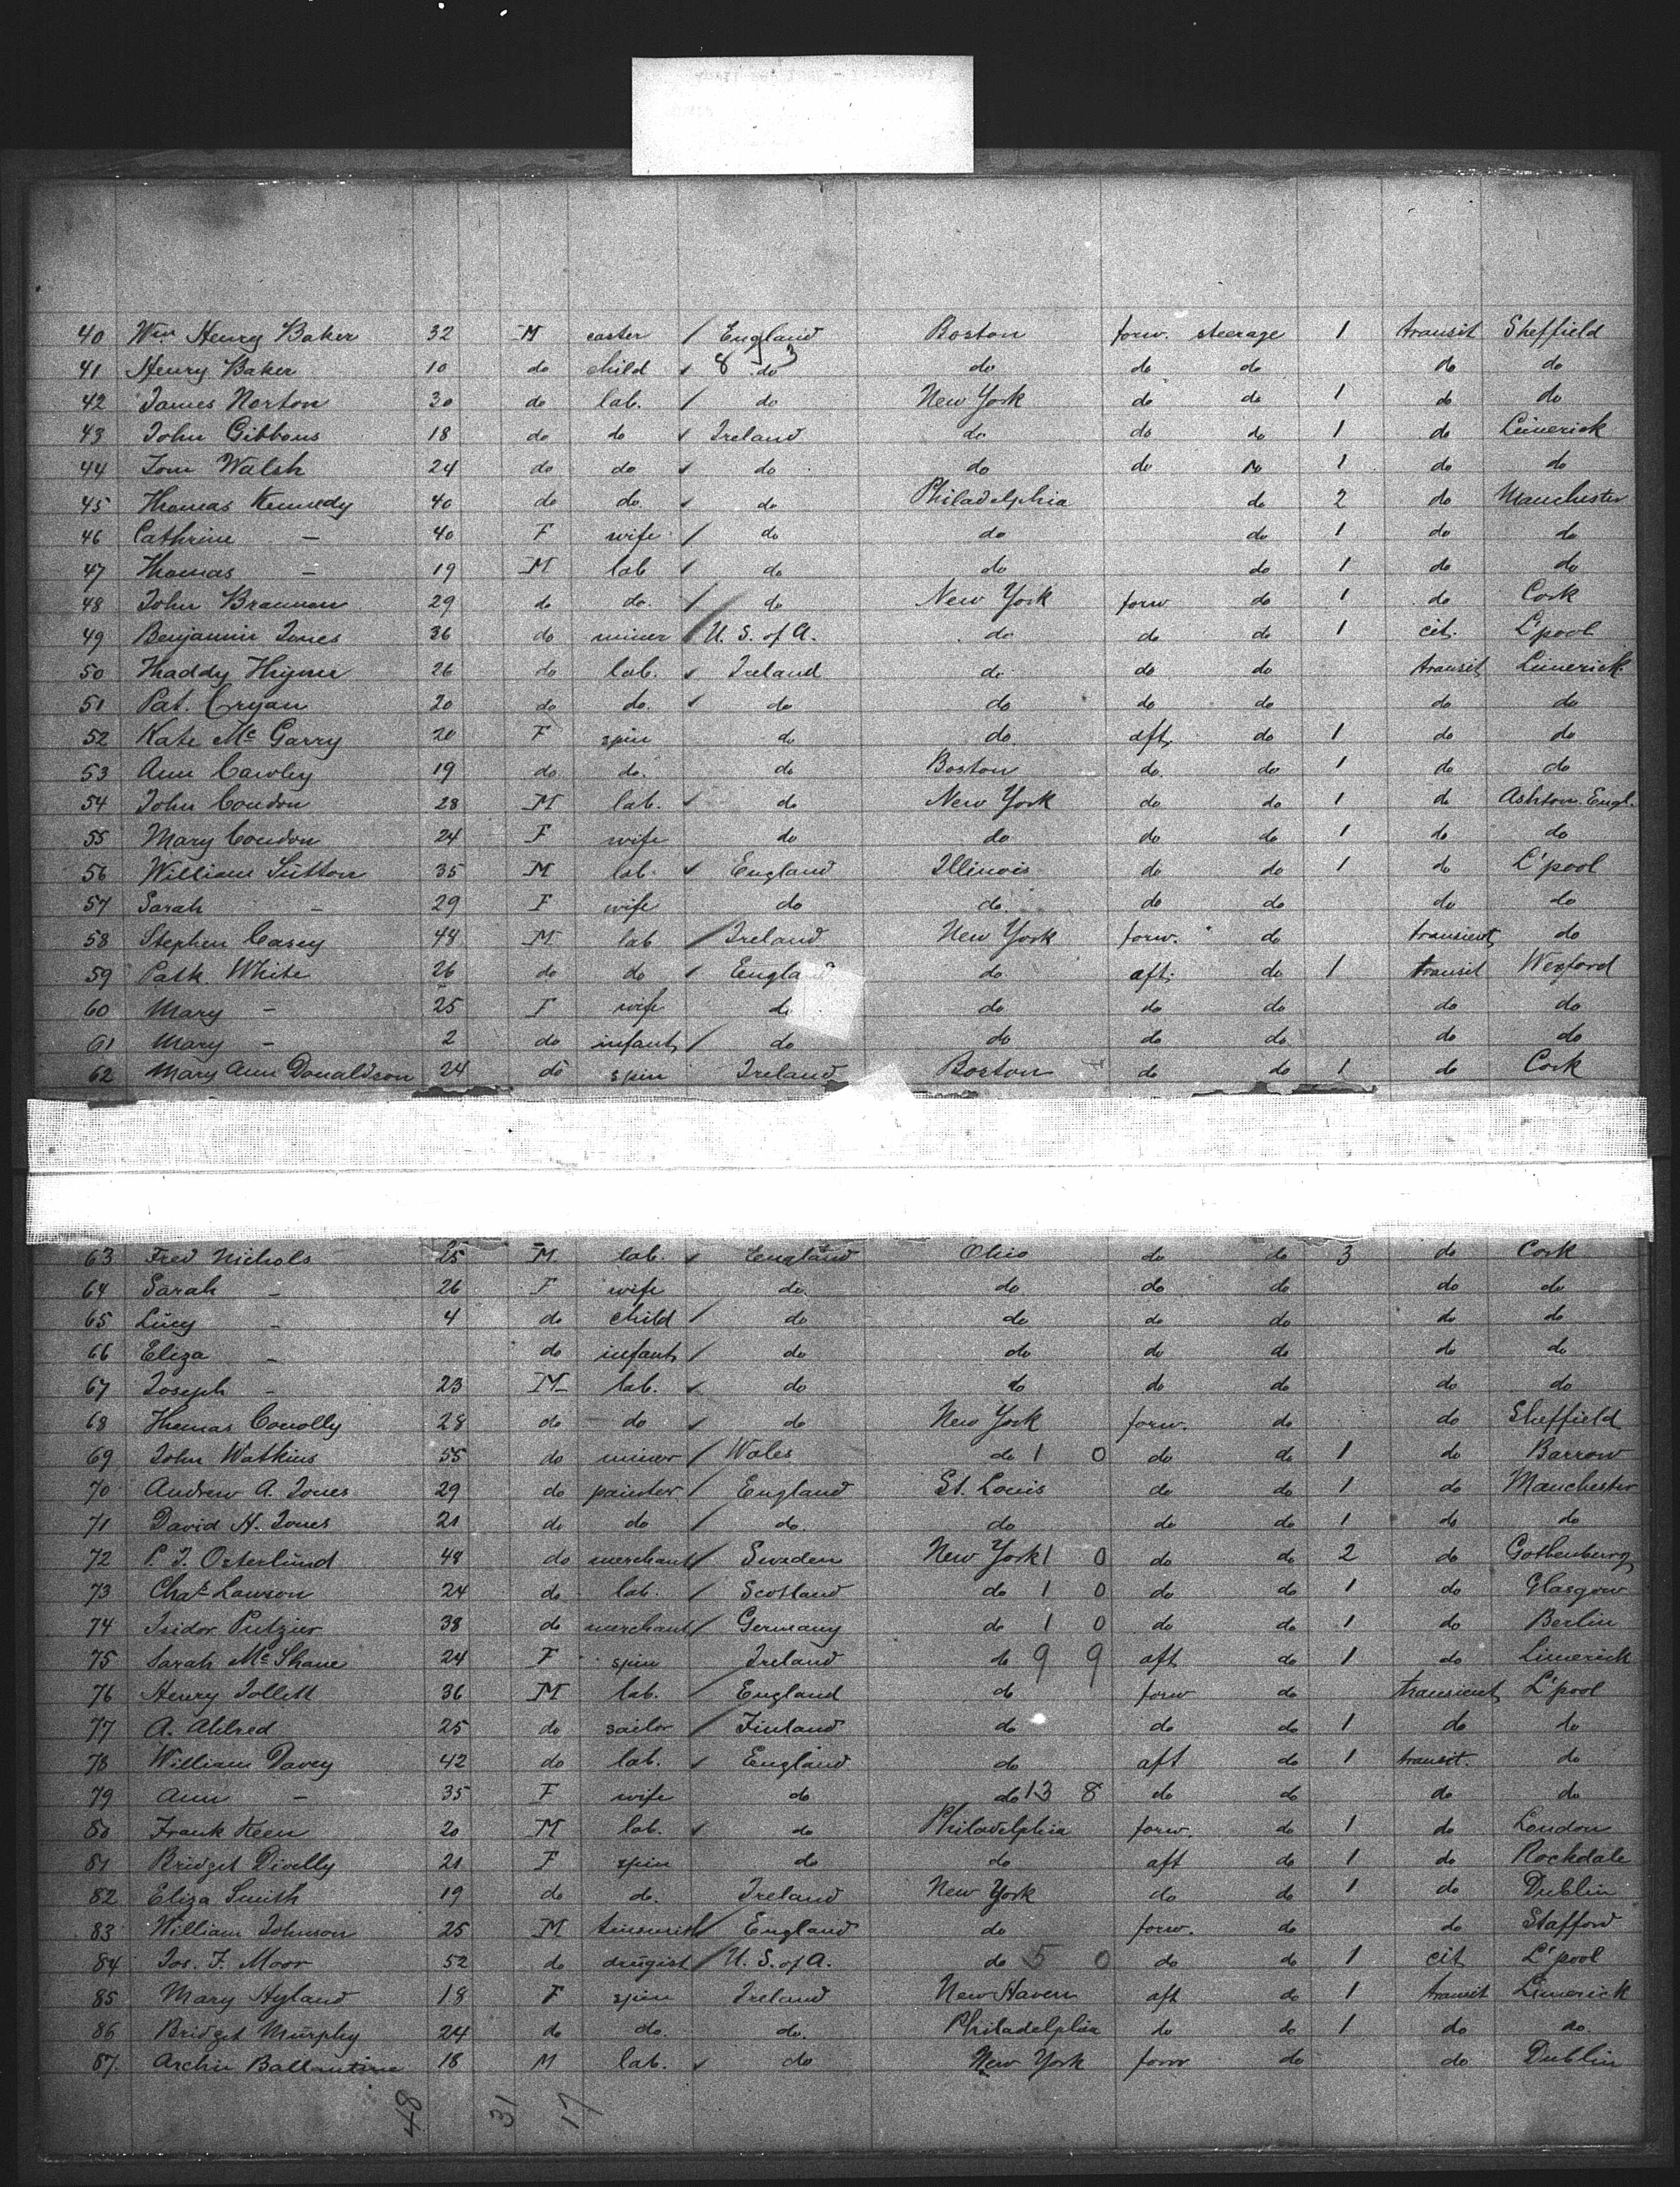 40 Wm Henry Baker 32 M caster / England Boston forw. steerage 1 transit Sheffield
41 Henry Baker 10 do child ✓ 8 do 3 do do do do do
42 James Norton 30 do lab. / do New York do do 1 do do
43 John Gibbons 18 do do ✓ Ireland do do do 1 do Limerick
44 Tom Walsh 24 do do ✓ do do do do 1 do do
45 Thomas Kennedy 40 do do ✓ do Philadelphia do 2 do Manchester
46 Cathrine - 40 F wife / do do do 1 do do
47 Thomas - 19 M lab ✓ do do do 1 do do
48 John Brannan 29 do do. / do New York forw do 1 do Cork
49 Benjamin Jones 36 do miner / U. S. of A. do do do 1 cit. L'pool
50 Thaddy 26 do lab. ✓ Ireland do do do transit Limerick
51 Pat. Cryan 20 do do. ✓ do do do do do do
52 Kate Mc Garry 20 F spin do do aft do 1 do do
53 Ann Cawley 19 do do. do Boston do. do 1 do do
54 John Condon 28 M lab. ✓ do New York do do 1 do Ashton. Engl.
55 Mary Condon 24 F wife do do do do 1 do do
56 William Sutton 35 M lab. ✓ England Illinois do do 1 do L'pool
57 Sarah - 29 F wife do do. do do do do
58 Stephen Casey 48 M lab / Ireland New York forw. do transient do
59 Patk. White 26 do do ✓ England do aft. do 1 transit Wexford
60 Mary - 25 F wife do do do do do do
61 Mary - 2 do infant / do do do do do do
62 Mary Ann Donaldson 24 do spin Ireland Boston do do 1 do Cork
63 Fred Nichols 25 M. lab. ✓ England Ohio do do 3 do Cork
64 Sarah - 26 F wife do. do do do do do
65 Lucy - 4 do child / do do do do do do
66 Eliza - do infant / do do do do do do
67 Joseph - 23 M lab. ✓ do do do do do do
68 Thomas Conolly 28 do do ✓ do New York forw. do do Sheffield
69 John Watkins 55 do miner / Wales do 1 0 do do 1 do Barrow
70 Andrew A. Jones 29 do painter / England St. Louis do do 1 do Manchester
71 David H. Jones 21 do do / do. do do do 1 do do
72 P. J. Osterlund 48 do merchant / Sweden New York 1 0 do do 2 do Gothenburg
73 Chas Lawson 24 do lab. / Scotland do 1 0 do do 1 do Glasgow
74 Isidor Putzier 38 do merchant / Germany do 1 0 do do 1 do Berlin
75 Sarah Mc Shane 24 F spin Ireland do 9 9 aft do 1 do Limerick
76 Henry Tollett 36 M lab. / England do forw do transient L'pool
77 A. Ahlred 25 do sailor / Finland do do do 1 do do
78 William Davey 42 do lab. ✓ England do aft do 1 transit. do
79 Ann - 35 F wife do do 13 8 do do do do
80 Frank Keen 20 M lab. ✓ do Philadelphia forw. do 1 do London
81 Bridget Divelly 21 F spin do do aft do 1 do Rochdale
82 Eliza Smith 19 do do. Ireland New York do do 1 do Dublin
83 William Johnson 25 M tinsmith / England do forw. do do Stafford
84 Jos. F. Moor 52 do drugist / U. S. of A. do 5 0 do do 1 cit L'pool
85 Mary Hyland 18 F spin Ireland New Haven aft do 1 transit Limerick
86 Bridget Murphy 24 do do. do. Philadelphia do do 1 do do.
87. Archie Ballantine 18 M lab. ✓ do New York forw do do Dublin
48 31 17